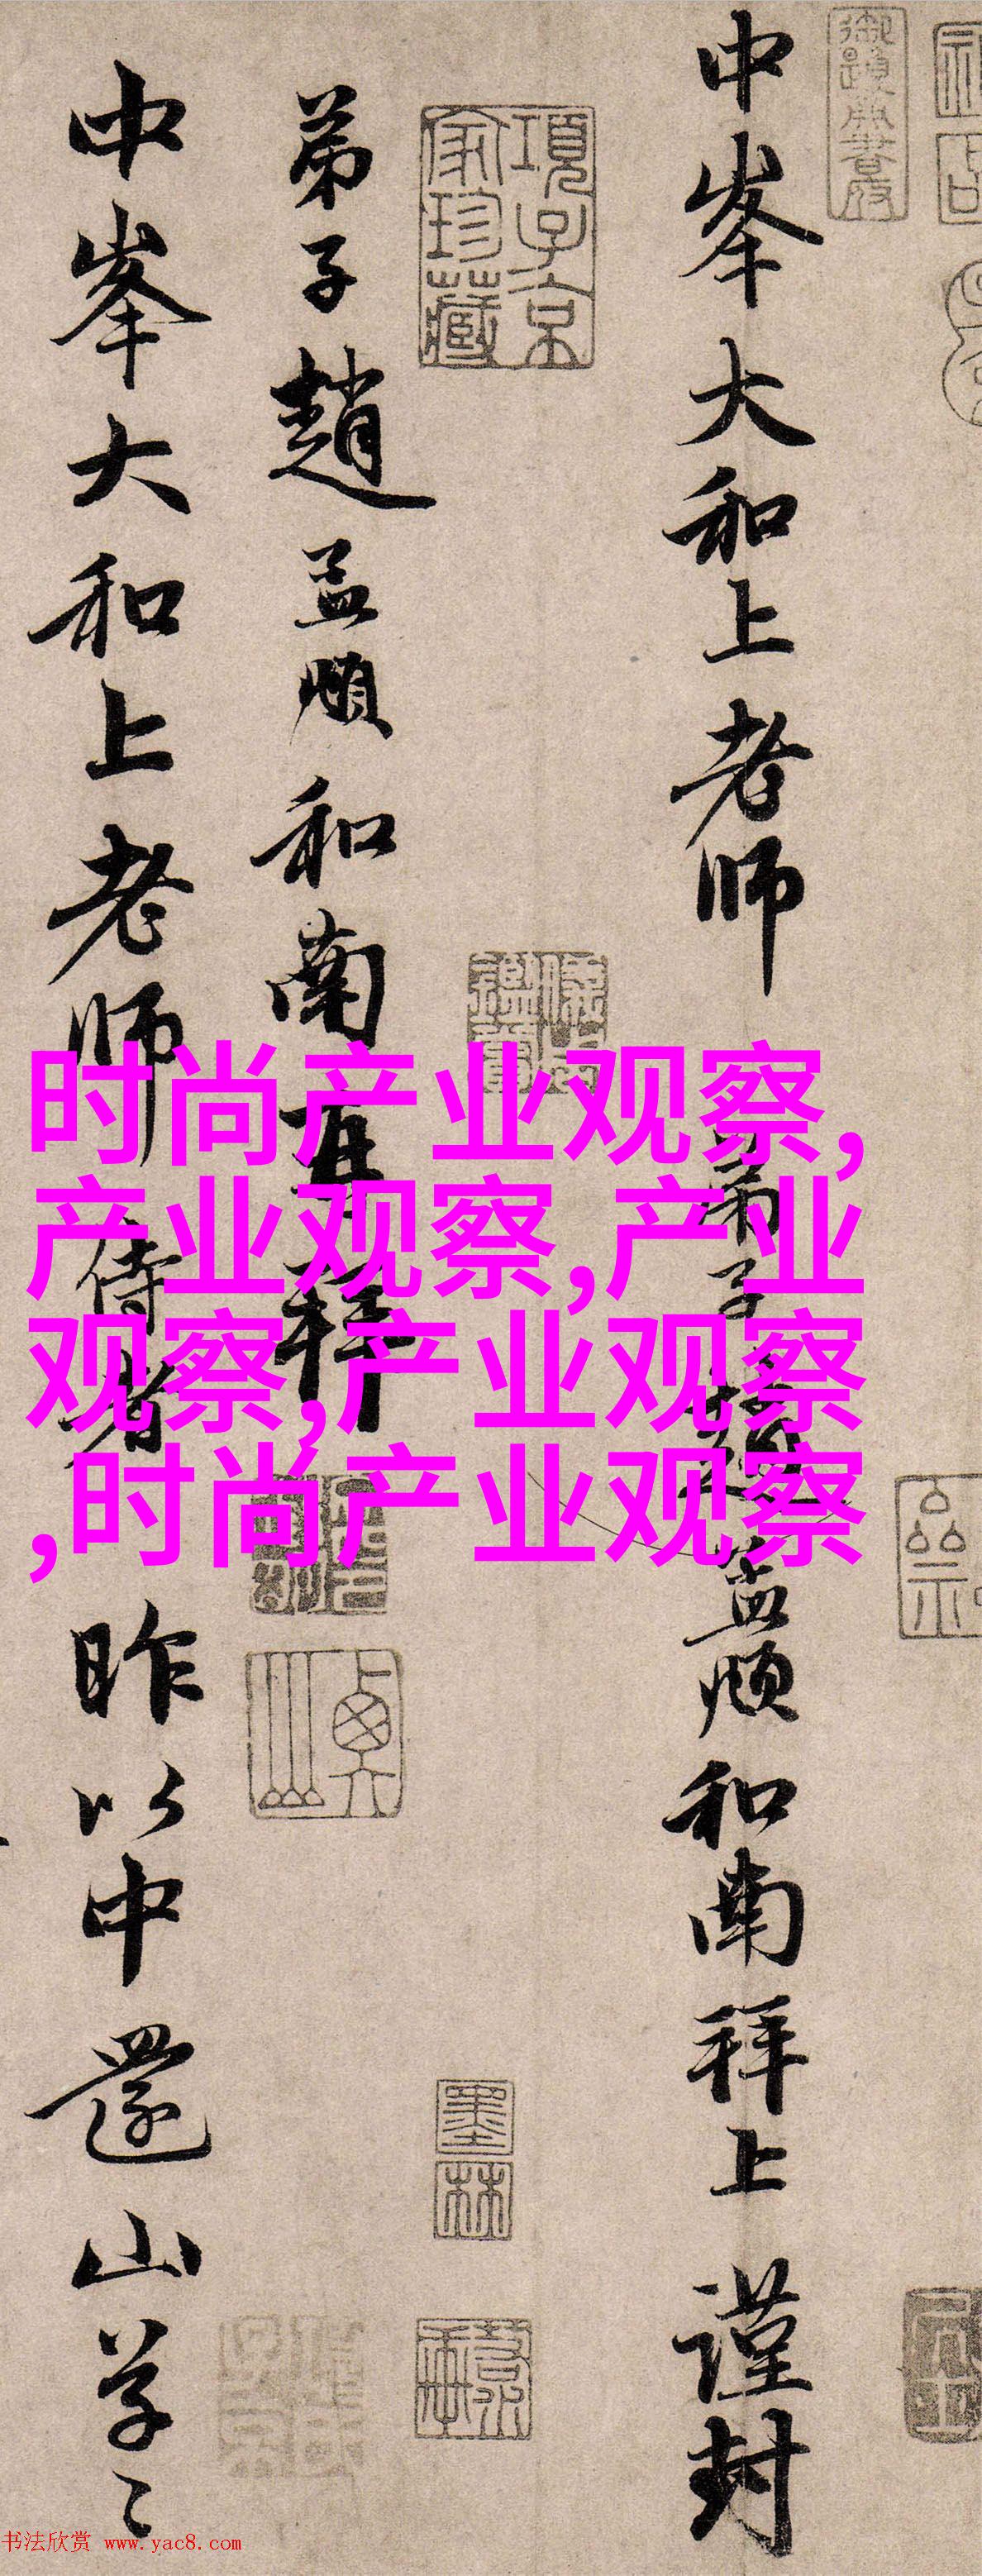 中峯大和上老師
弟子趙孟頫和南拜上 謹封
弟子趙孟頫和南再拜
中峯大和上老師侍者 昨以中還山草々
項子京
家珍藏
墨
林
时尚产业观察,
产业观察,产业
观察,产业观察
,时尚产业观察
书法欣赏 www.yac8.com